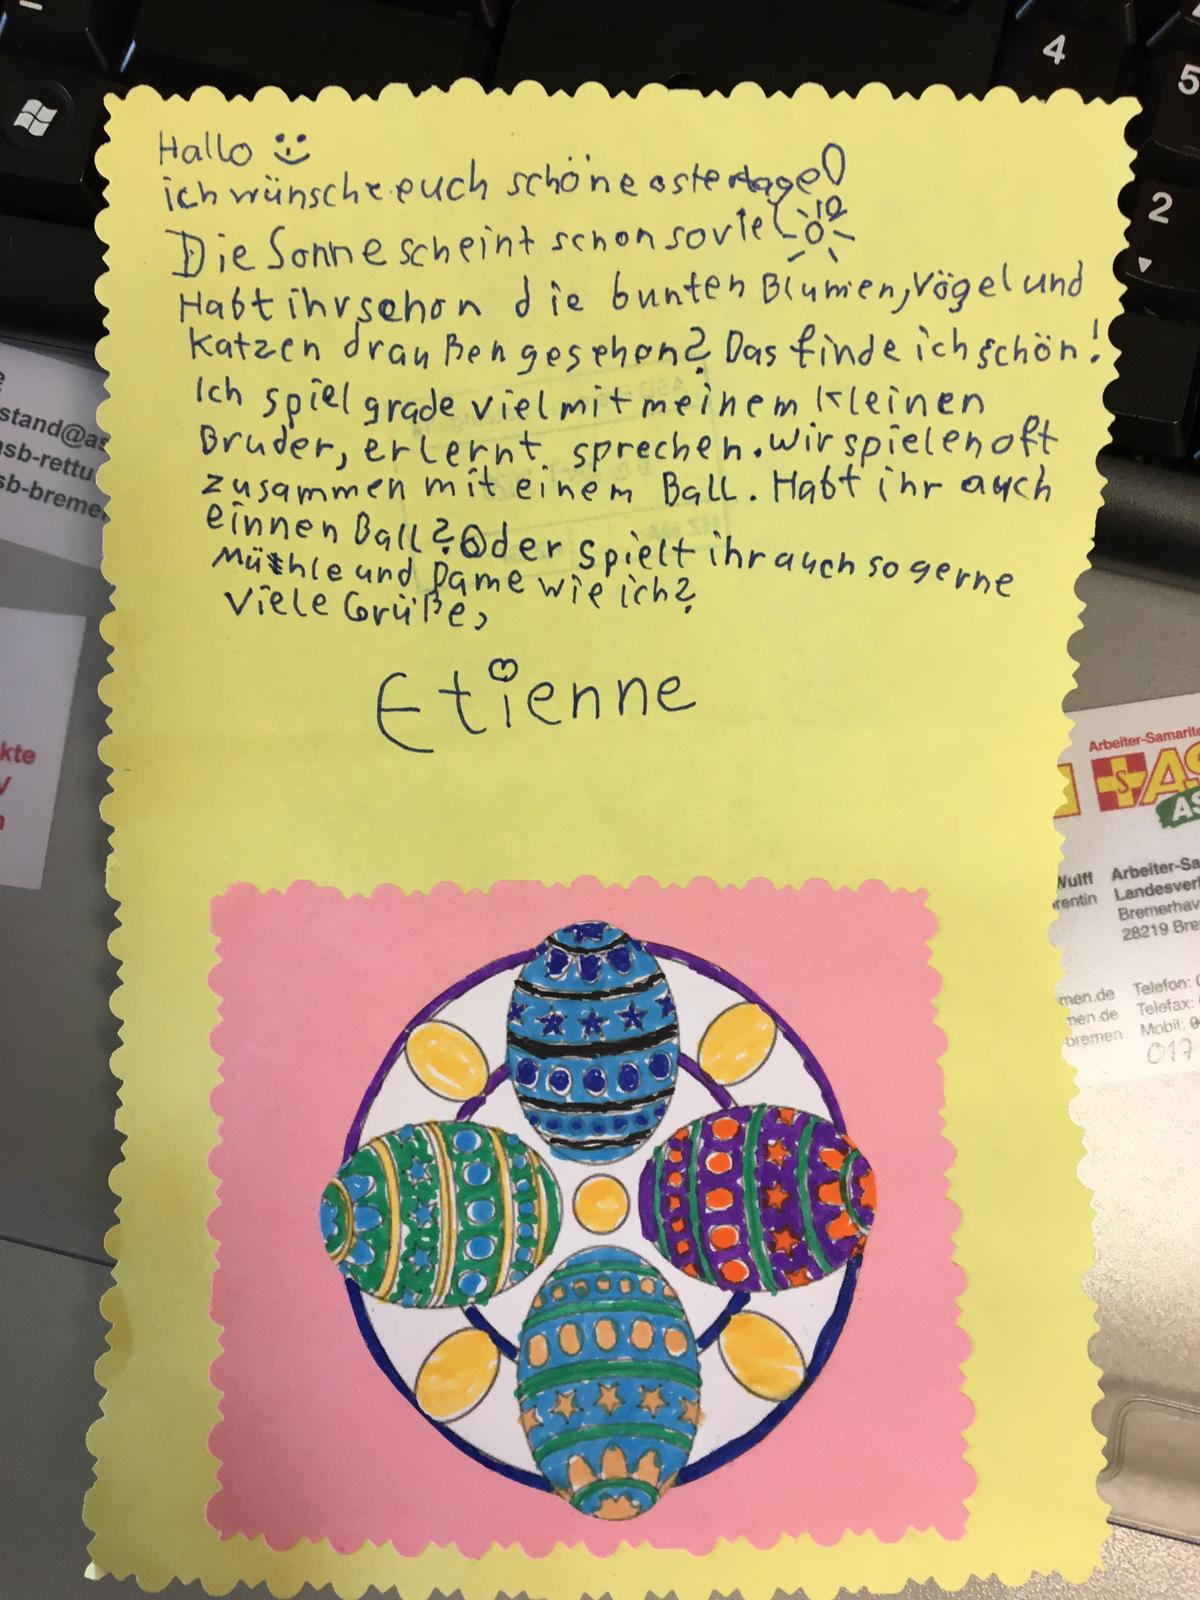 Hallo
ich wünsche euch schöne ostertage!
Die Sonne scheint schon so viel
Habt ihr schon die bunten Blumen, Vögel und
Katzen draußen gesehen? Das finde ich schön!
Ich spiel grade viel mit meinem kleinen
Bruder, er lernt sprechen. Wir spielen oft
zusammen mit einem Ball. Habt ihr auch
einnen Ball? Oder spielt ihr auch so gerne
Mühle und Dame wie ich?
Viele Grüße,
Etienne
4
5
2
stand@as
asb-rettu
sb-bremen
kte
Arbeiter-Samarite
AS
AS
Wulff
Arbeiter-Sa
rentin
Landesver
Bremerhav
28219 Bre
men.de
Telefon: 0
men.de
Telefax:
bremen
Mobil:
017